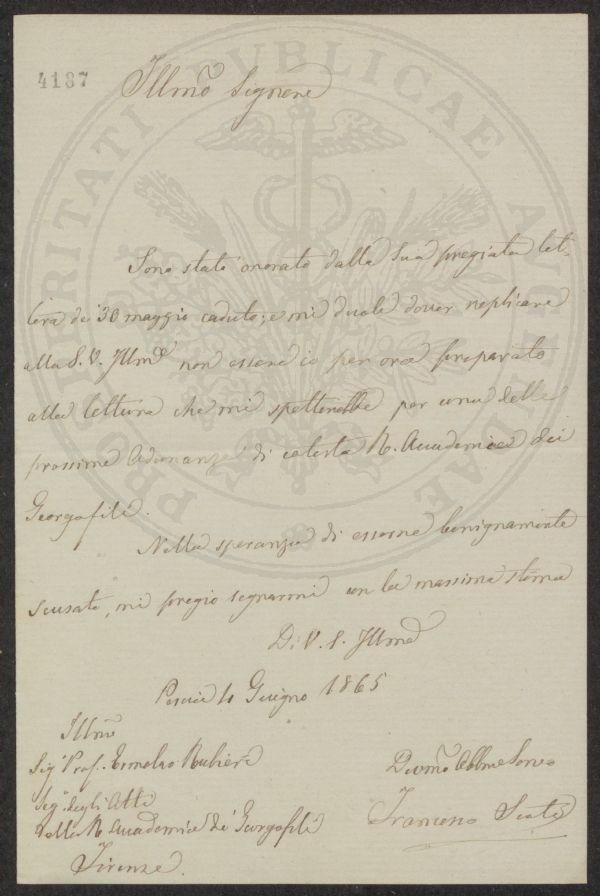 4187
Illmo Signore
Sono stato onorato dalla Sua pregiata let-
tera de' 30 maggio caduto; e mi duole dover replicare
alla S. V. Illma non essere io per ora preparato
alla lettura che mi spetterebbe per una delle
prossime Adunanze di cotesta R. Accademia dei
Georgofili.
Nella speranza di esserne benignamente
scusato, mi pregio segnarmi con la massima stima
Di V. S. Illma
Pescia Giugno 1865
Illmo
Sigr Prof. Ermolao Rubieri
Segr degli Atti
della R. Accademia de' Georgofili
Firenze.
Devmo Obbmo Serve
Francesco
PROSPERITATI PUBLICAE AUGENDAE